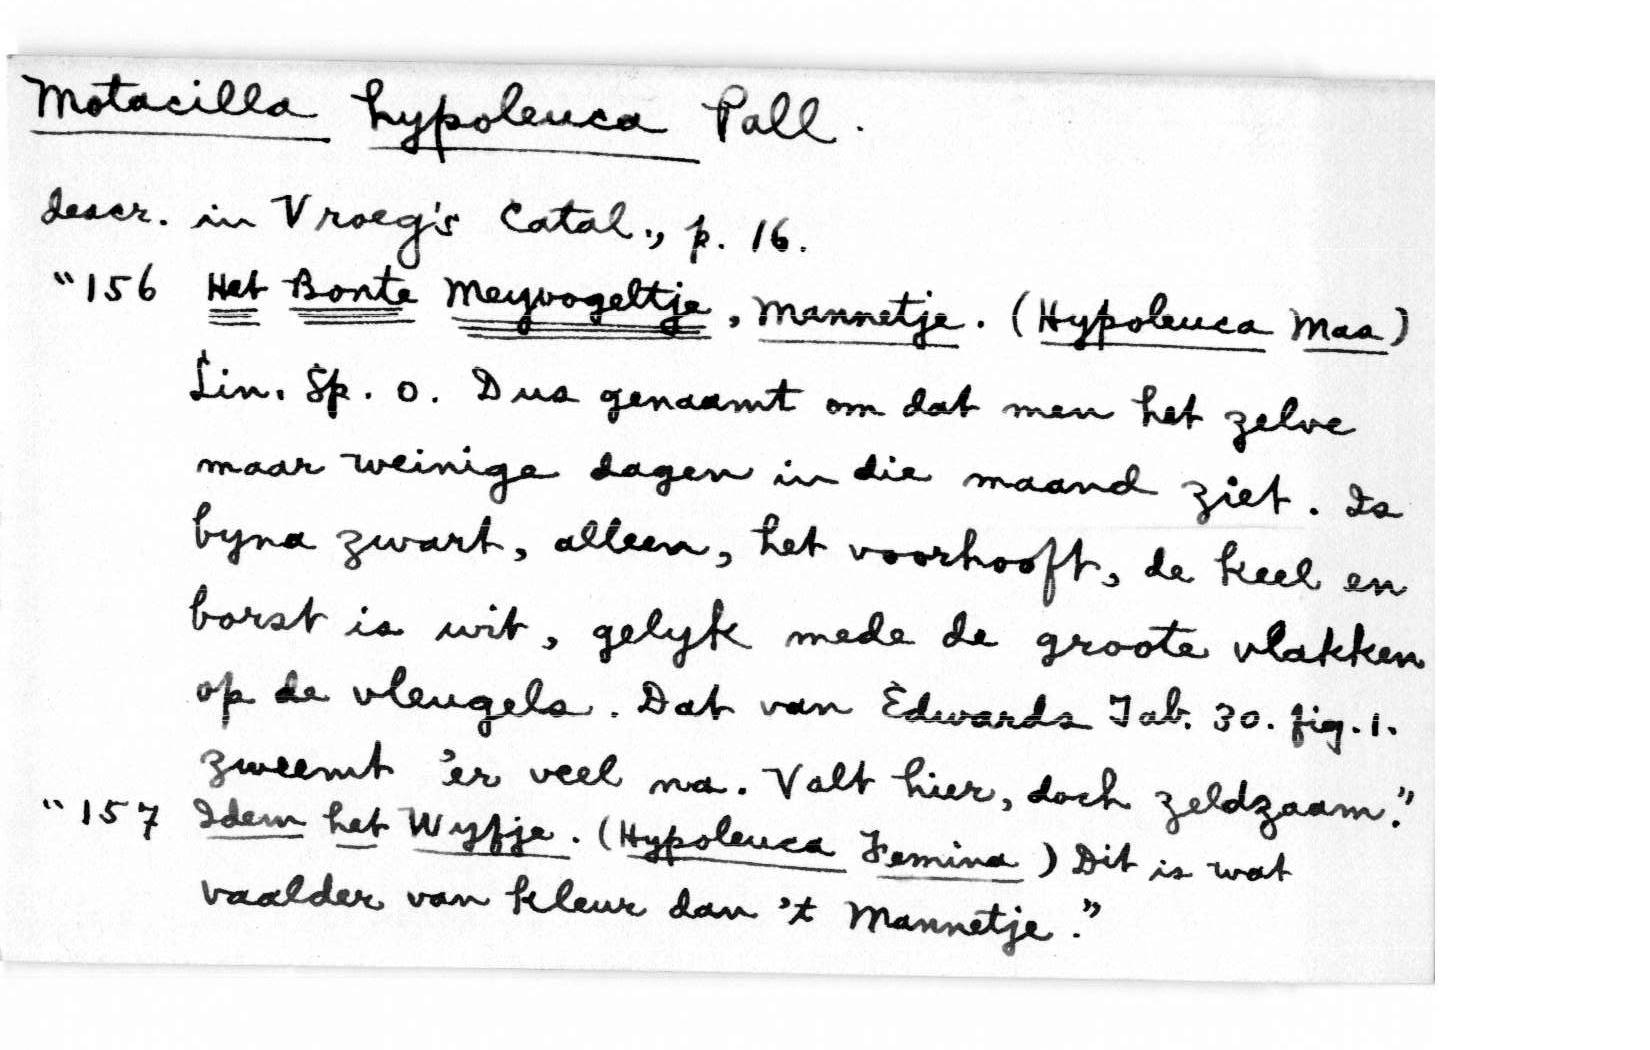 Motacilla hypoleuca Pall.
descr. in Vroeg's Catal., p. 16.
"156 Het Bonte Meyvogeltje, Mannetje. (Hypoleuca Mas)
Lin. Sp. 0. Dus genaamt om dat men het zelve
maar weinige dagen in die maand ziet. Is
byna zwart, alleen, het voorhooft, de keel en
borst is wit, gelyk mede de groote vlakken
op de vleugels. Dat van Edwards Tab. 30. fig. 1.
zweemt 'er veel na. Valt hier, doch zeldzaam."
"157 Idem het Wyfje. (Hypoleuca Femina) Dit is wat
vaalder van kleur dan 't Mannetje."